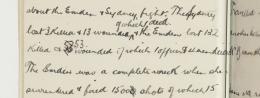 about the Emden & Sydney fight. The Sydney
of which died.
lost 3 Killed & 13 wounded, & the Emden lost 132
53
Killed & wounded of which 10 officers
The Emden was a complete wreck when she
surrendered & fired 1500 shots of which 15